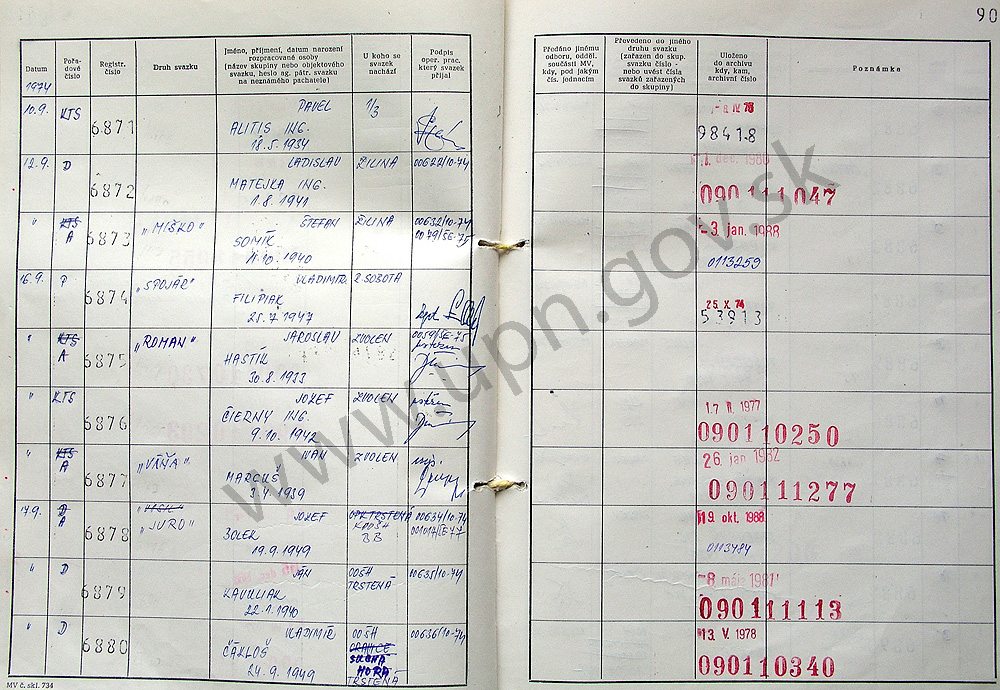 90
Datum
Pořa-
dové
číslo
Registr.
číslo
Druh svazku
Jméno, příjmení, datum narození
rozpracované osoby
(název skupiny nebo objektového
svazku, heslo ag. pátr. svazku
na neznámého pachatele)
U koho se
svazek
nachází
Podpis
oper. prac.
který svazek
přijal
Předáno jinému
odboru, odděl.
součásti MV,
kdy, pod jakým
čís. jednacím
Převedeno do jiného
druhu svazku
(zařazen do skup.
svazku číslo -
nebo uvést čísla
svazků zařazených
do skupiny)
Uloženo
do archivu
kdy, kam,
archivní číslo
Poznámka
1974
10.9. KTS 6871 PAVEL 1/3
ALITIS ING.
18.5.1934
IV 78
98418
12.9. D 6872 LADISLAV ŽILINA 00622/10-74
MATEJKA ING.
1.8.1941
dec. 1980
090111047
" KTS A 6873 "MIŠKO" ŠTEFAN ŽILINA 00632/10-74
0079/SE-75
SOMÍK
11.10.1940
-3. jan. 1988
0113259
16.9. P 6874 "SPOJÁR" VLADIMÍR R.SOBOTA
FILIPIAK
25.7.1947
25 X 74
53913
" KTS A 6875 "ROMAN" JAROSLAV ZVOLEN 0059/SE-75
HASTÍK
30.8.1933
" KTS 6876 JOZEF ZVOLEN
ČIERNY ING.
9.10.1942
17 II 1977
090110250
" KTS A 6877 "VÁŇA" IVAN ZVOLEN
MARCUŠ
3.4.1939
26. jan. 1982
090111277
17.9. D A 6878 "JURO" JOZEF TRSTENÁ 00634/10-74
BB
ZOLEK
19.9.1949
19. okt. 1988
0113484
" D 6879 JÁN OOSH TRSTENÁ 00635/10-74
KAVULIAK
22.1.1940
-8 máj 1981
090111113
" D 6880 VLADIMÍR OOSH 00636/10-74
ORAVICE
SUCHÁ
HORA
TRSTENÁ
ČÁKLOŠ
24.9.1949
13. V. 1978
090110340
MV č. skl. 734
www.upn.gov.sk